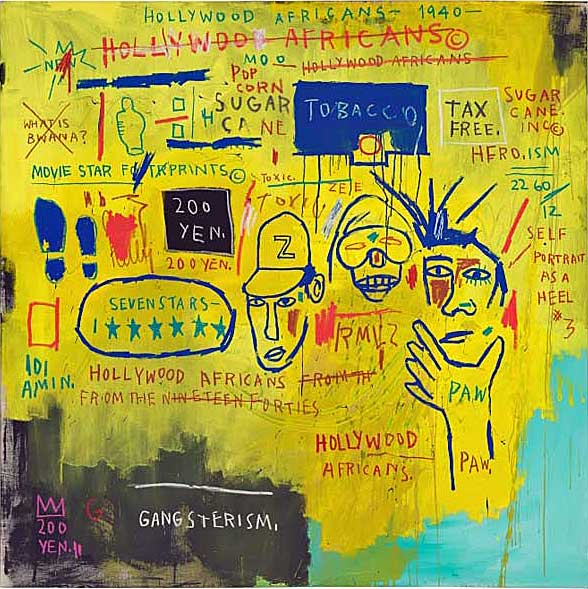 HOLLYWOOD AFRICANS- 1940-
HOLLYWOOD AFRICANS©
HOLLYWOOD AFRICANS
POP
CORN
SUGAR
CANE
TOBACCO
TAX
FREE.
SUGAR
CANE.
INC©
WHAT IS
BWANA?
HERO.ISM
MOVIE STAR FOOTPRINTS©
TOXIC.
2260
12
200
YEN.
200 YEN.
SELF
PORTRAIT
AS A
HEEL
#3
Z
SEVEN STARS-
IDI
AMIN.
HOLLYWOOD AFRICANS FROM TH
FROM THE NINETEEN FORTIES
PAW
HOLLYWOOD
AFRICANS.
PAW.
200
YEN.
GANGSTERISM.